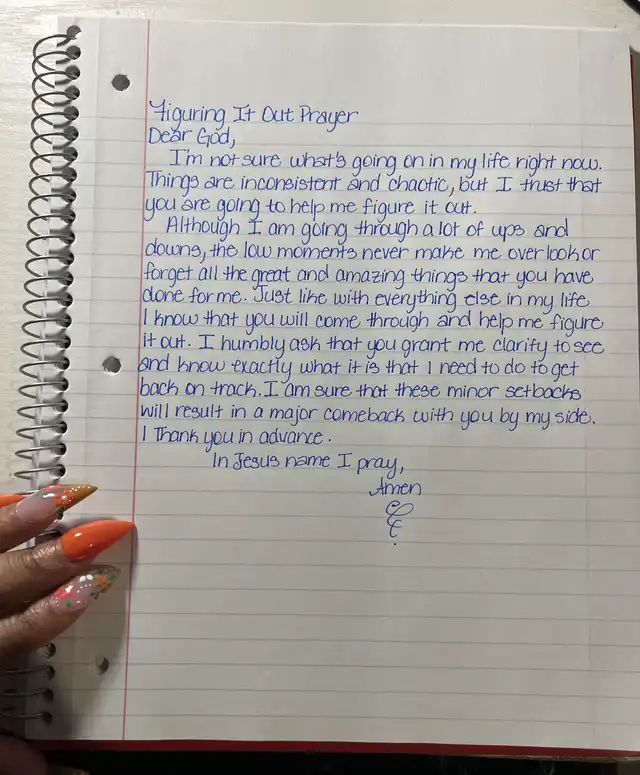 Figuring It Out Prayer
Dear God,
I'm not sure what's going on in my life right now.
Things are inconsistent and chaotic, but I trust that
you are going to help me figure it out.
Although I am going through a lot of ups and
downs, the low moments never make me overlook or
forget all the great and amazing things that you have
done for me. Just like with everything else in my life
I know that you will come through and help me figure
it out. I humbly ask that you grant me clarity to see
and know exactly what it is that I need to do to get
back on track. I am sure that these minor setbacks
will result in a major comeback with you by my side.
I Thank you in advance.
In Jesus name I pray,
Amen